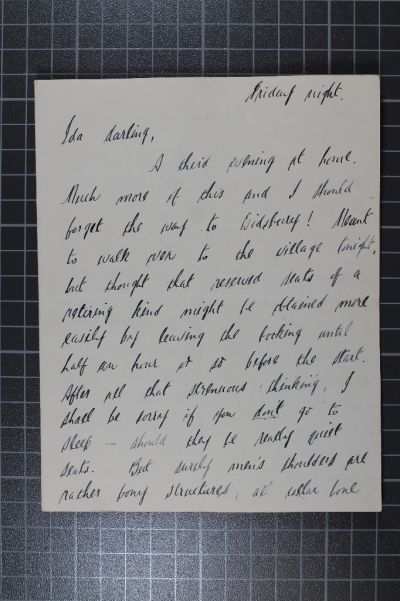 Friday night.
Ida darling,
A third evening at home.
Much more of this and I should
forget the way to Didsbury! Meant
to walk over to the village tonight,
but thought that reserved seats of a
retiring kind might be obtained more
easily by leaving the booking until
half an hour or so before the start.
After all that strenuous thinking, I
shall be sorry if you don't go to
sleep — should they be really quiet
seats. But surely men's shoulders are
rather bony structures, all collar bone